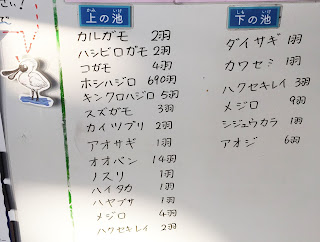 さい!
上の池
かみ いけ
カルガモ 2羽
ハシビロガモ 2羽
コガモ 4羽
ホシハジロ 690羽
キンクロハジロ 5羽
スズガモ 3羽
カイツブリ 2羽
アオサギ 1羽
オオバン 14羽
ノスリ 1羽
ハイタカ 1羽
ハヤブサ 1羽
メジロ 4羽
ハクセキレイ 2羽
下の池
しも いけ
ダイサギ 1羽
カワセミ 1羽
ハクセキレイ 3羽
メジロ 9羽
シジュウカラ 1羽
アオジ 6羽